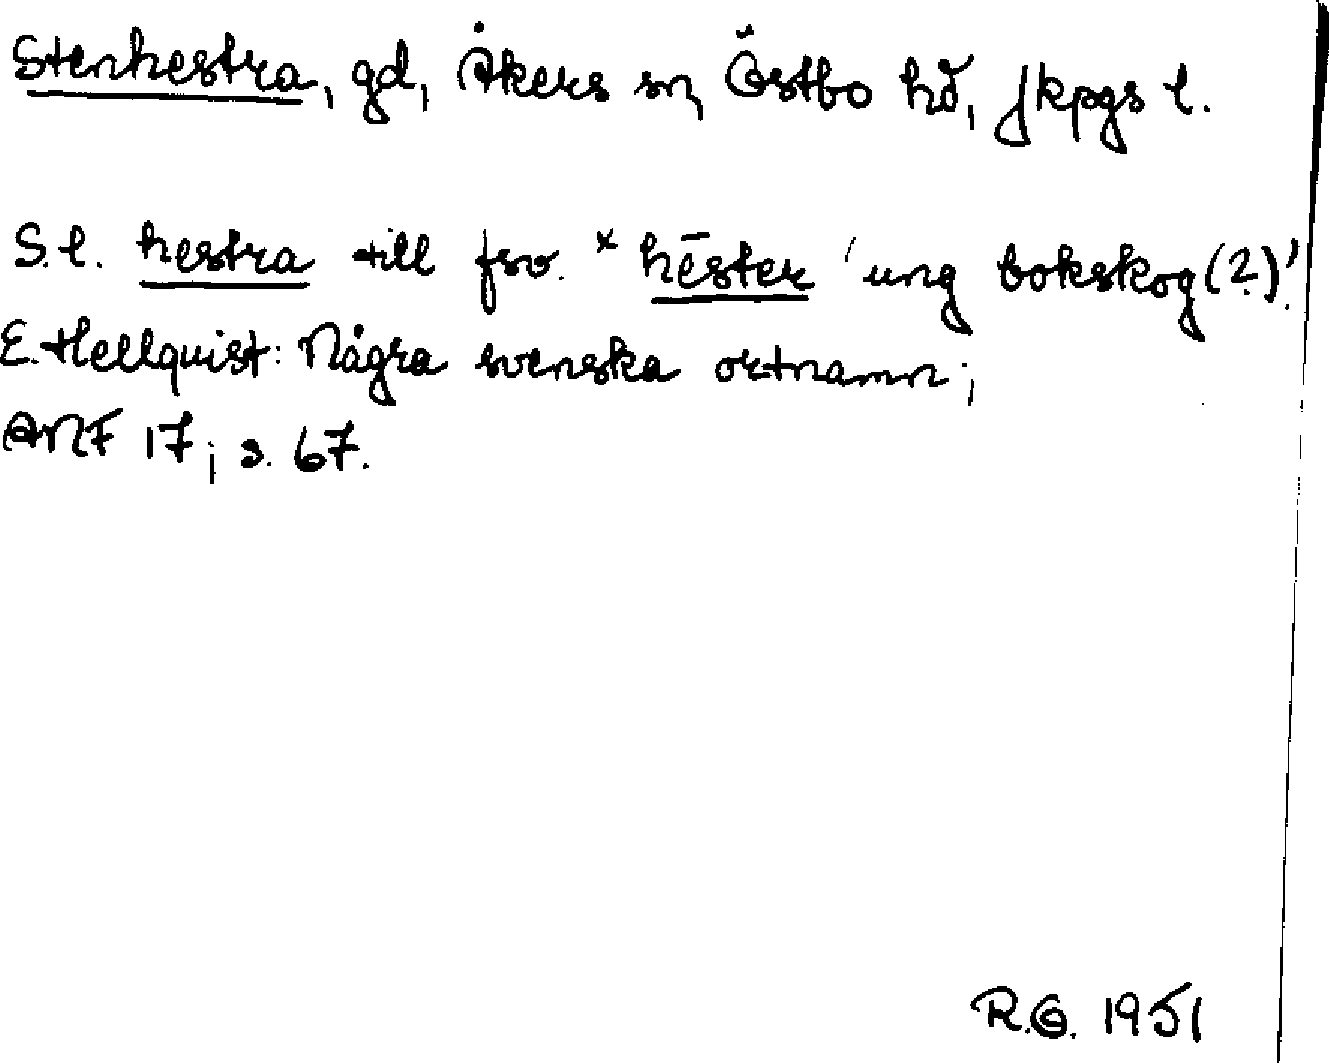 Stenhestra, gd, Åkers sn, Östbo hd, Jkpgs l.
S.l. hestra till fsv. *hēster 'ung bokskog(?)'.
E. Hellquist: Några svenska ortnamn;
ANF 17, s. 67.
R.G. 1951